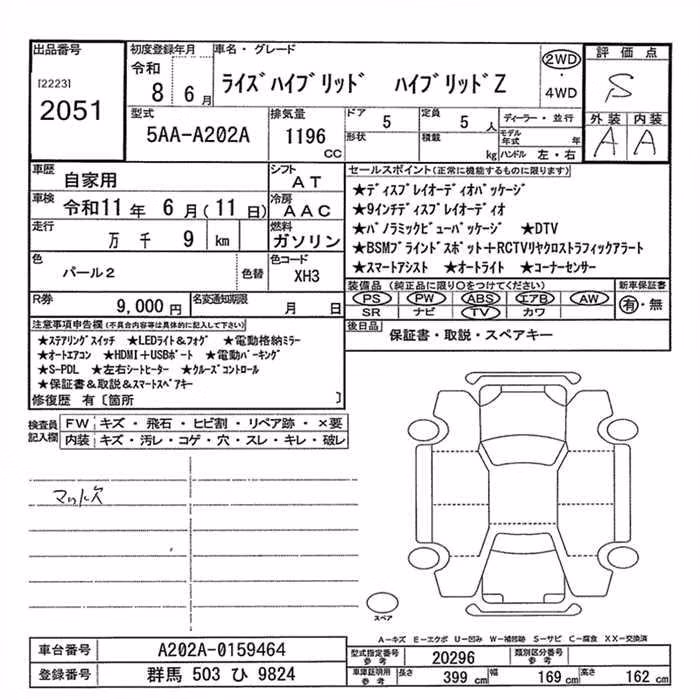 出品番号
[2223]
2051
初度登録年月
令和
8 6月
車名・グレード
ライズハイブリッド ハイブリッドZ
2WD
・
4WD
評価点
S
外装 内装
A A
型式
5AA-A202A
排気量
1196
CC
ドア
5
定員
5人
形状
積載
kg
ディーラー・並行
モデル年式 年
ハンドル 左・右
車歴
自家用
シフト
AT
車検
令和11年 6月(11日)
冷房
AAC
走行
万 千 9 km
燃料
ガソリン
色
パール2
色替
色コード
XH3
R券
9,000円
名変通知期限
月 日
セールスポイント(正常に機能するものに限ります)
★ディスプレイオーディオパッケージ
★9インチディスプレイオーディオ
★パノラミックビューパッケージ ★DTV
★BSMブラインドスポット+RCTVリヤクロストラフィックアラート
★スマートアシスト ★オートライト ★コーナーセンサー
装備品(純正品に限り○をつけてください)
PS PW ABS エアB AW
SR ナビ TV カワ
新車保証書
有・無
後日品
保証書・取説・スペアキー
注意事項申告欄(不具合内容等は具体的に記入して下さい)
★ステアリングスイッチ ★LEDライト&フォグ ★電動格納ミラー
★オートエアコン ★HDMI+USBポート ★電動パーキング
★S-PDL ★左右シートヒーター ★クルーズコントロール
★保証書&取説&スマートスペアキー
修復歴 有〔箇所 〕
検査員記入欄
FW キズ・飛石・ヒビ割・リペア跡・×要
内装 キズ・汚レ・コゲ・穴・スレ・キレ・破レ
マット欠
スペア
A−キズ E−エクボ U−凹み W−補修跡 S−サビ C−腐食 XX−交換済
車台番号
A202A-0159464
登録番号
群馬 503 ひ 9824
型式指定番号 参考
20296
類別区分番号 参考
車庫証明用 参考
長さ 399cm 幅 169cm 高さ 162cm